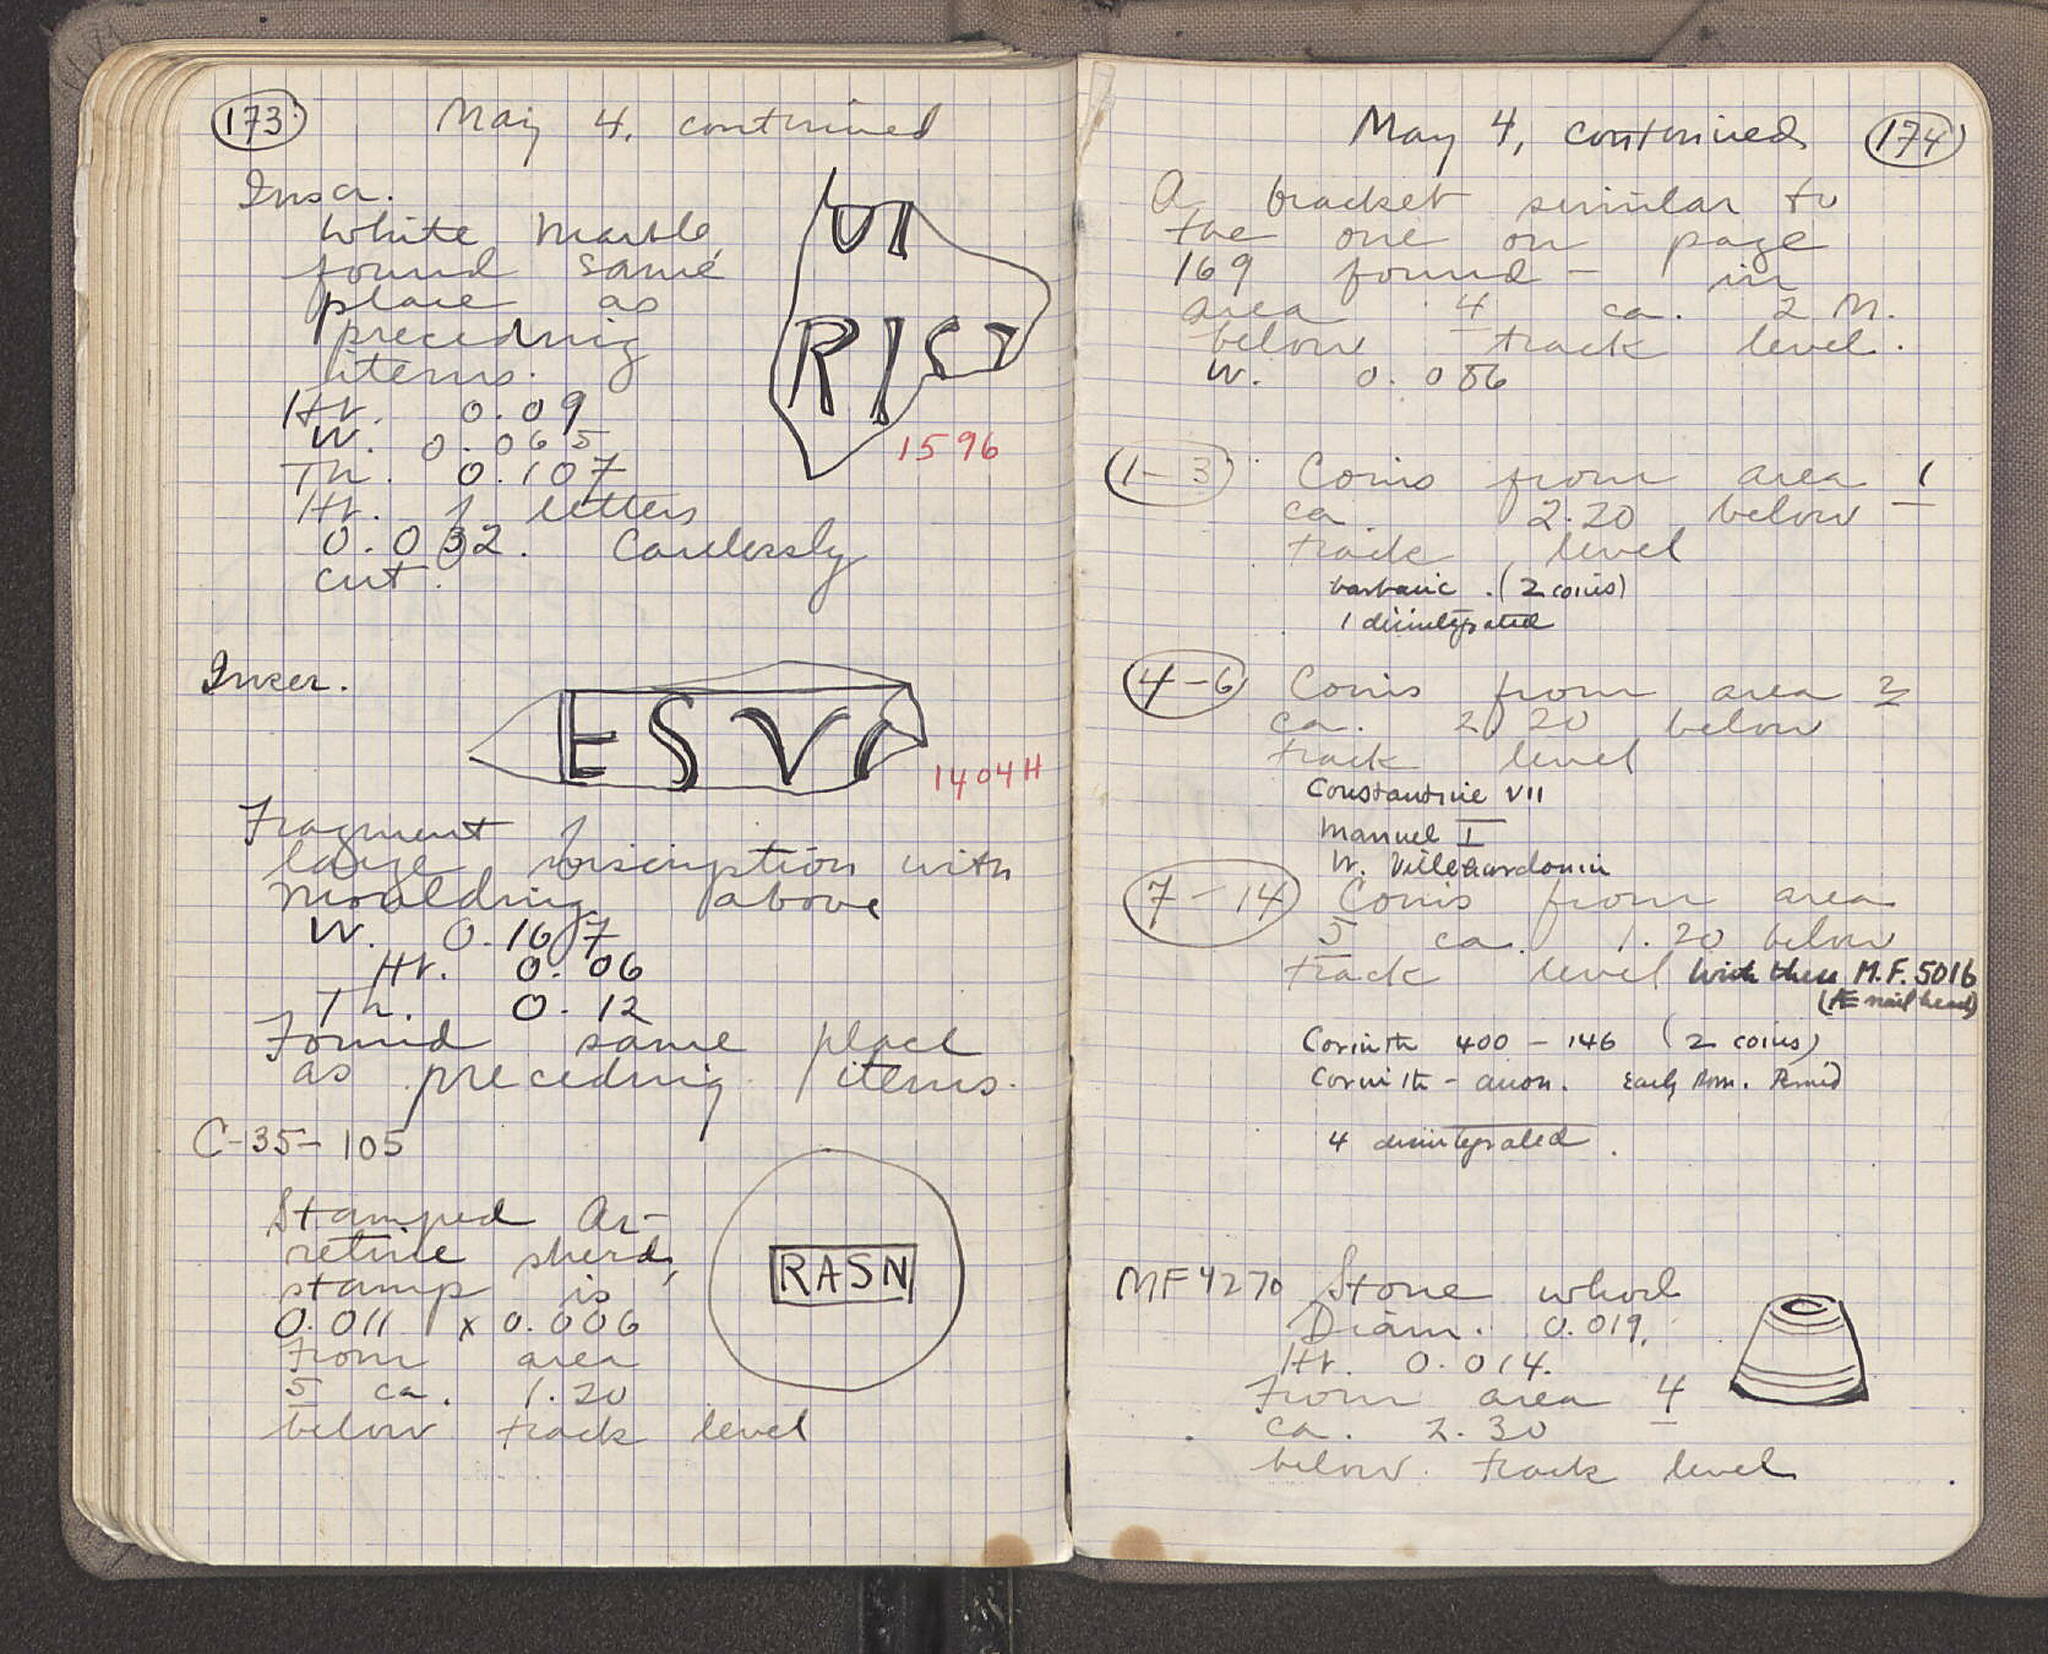 173
May 4, continued
Inscr.
white marble,
found same
place as
preceding
items.
Ht. 0.09
W. 0.065
Th. 0.107
Ht. of letters
0.032. Carelessly
cut.
VI
RIST
1596
Inscr.
ESV
1404H
Fragment of
large inscription with
moulding above
W. 0.167
Ht. 0.06
Th. 0.12
Found same place
as preceding items.
C-35-105
Stamped Ar-
retine sherd,
stamp is
0.011 x 0.006
From area
5 ca. 1.20
below track level
RASN
May 4, continued
174
A bracket similar to
the one on page
169 found – in
area 4 ca. 2 M.
below track level.
W. 0.086
1–3 Coins from area 1
ca. 2.20 below
track level
barbaric. (2 coins)
1 disintegrated
4–6 Coins from area 2
ca. 2.20 below
track level
Constantine VII
Manuel I
W. Villehardouin
7–14 Coins from area
5 ca. 1.20 below
track level with these M.F. 5016
(Æ nail head)
Corinth 400–146 (2 coins)
Corinth – anon. Early Rom. Period
4 disintegrated.
MF 4270 Stone whorl
Diam. 0.019.
Ht. 0.014.
From area 4
ca. 2.30
below track level